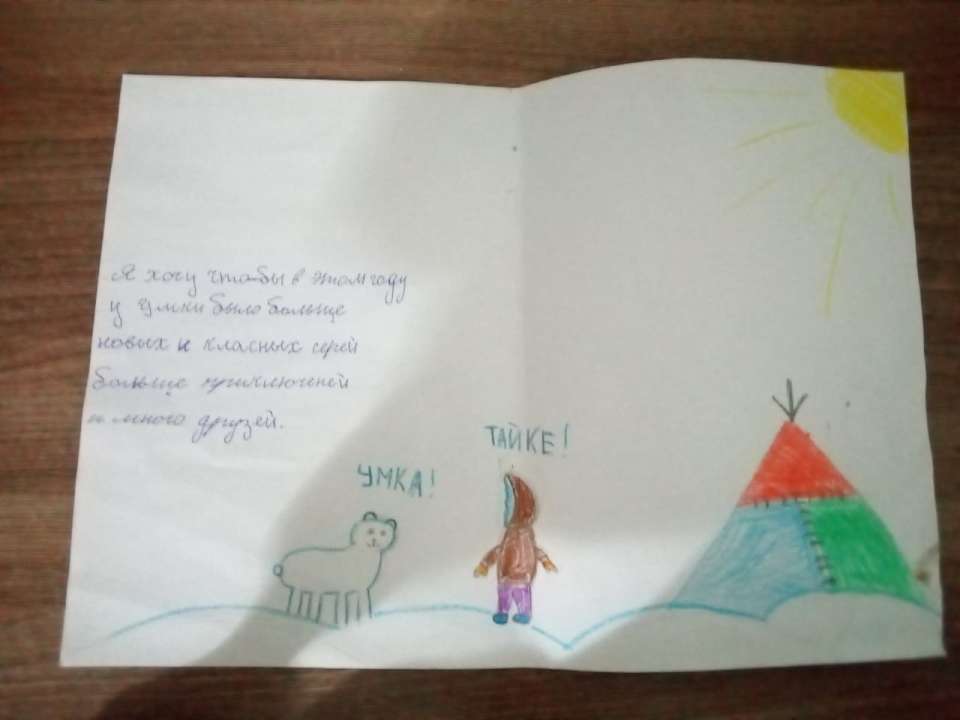 Я хочу чтобы в этом году
у Умки было больше
новых и класных серей
больше приключеней
и много друзей.
УМКА!
ТАЙКЕ!